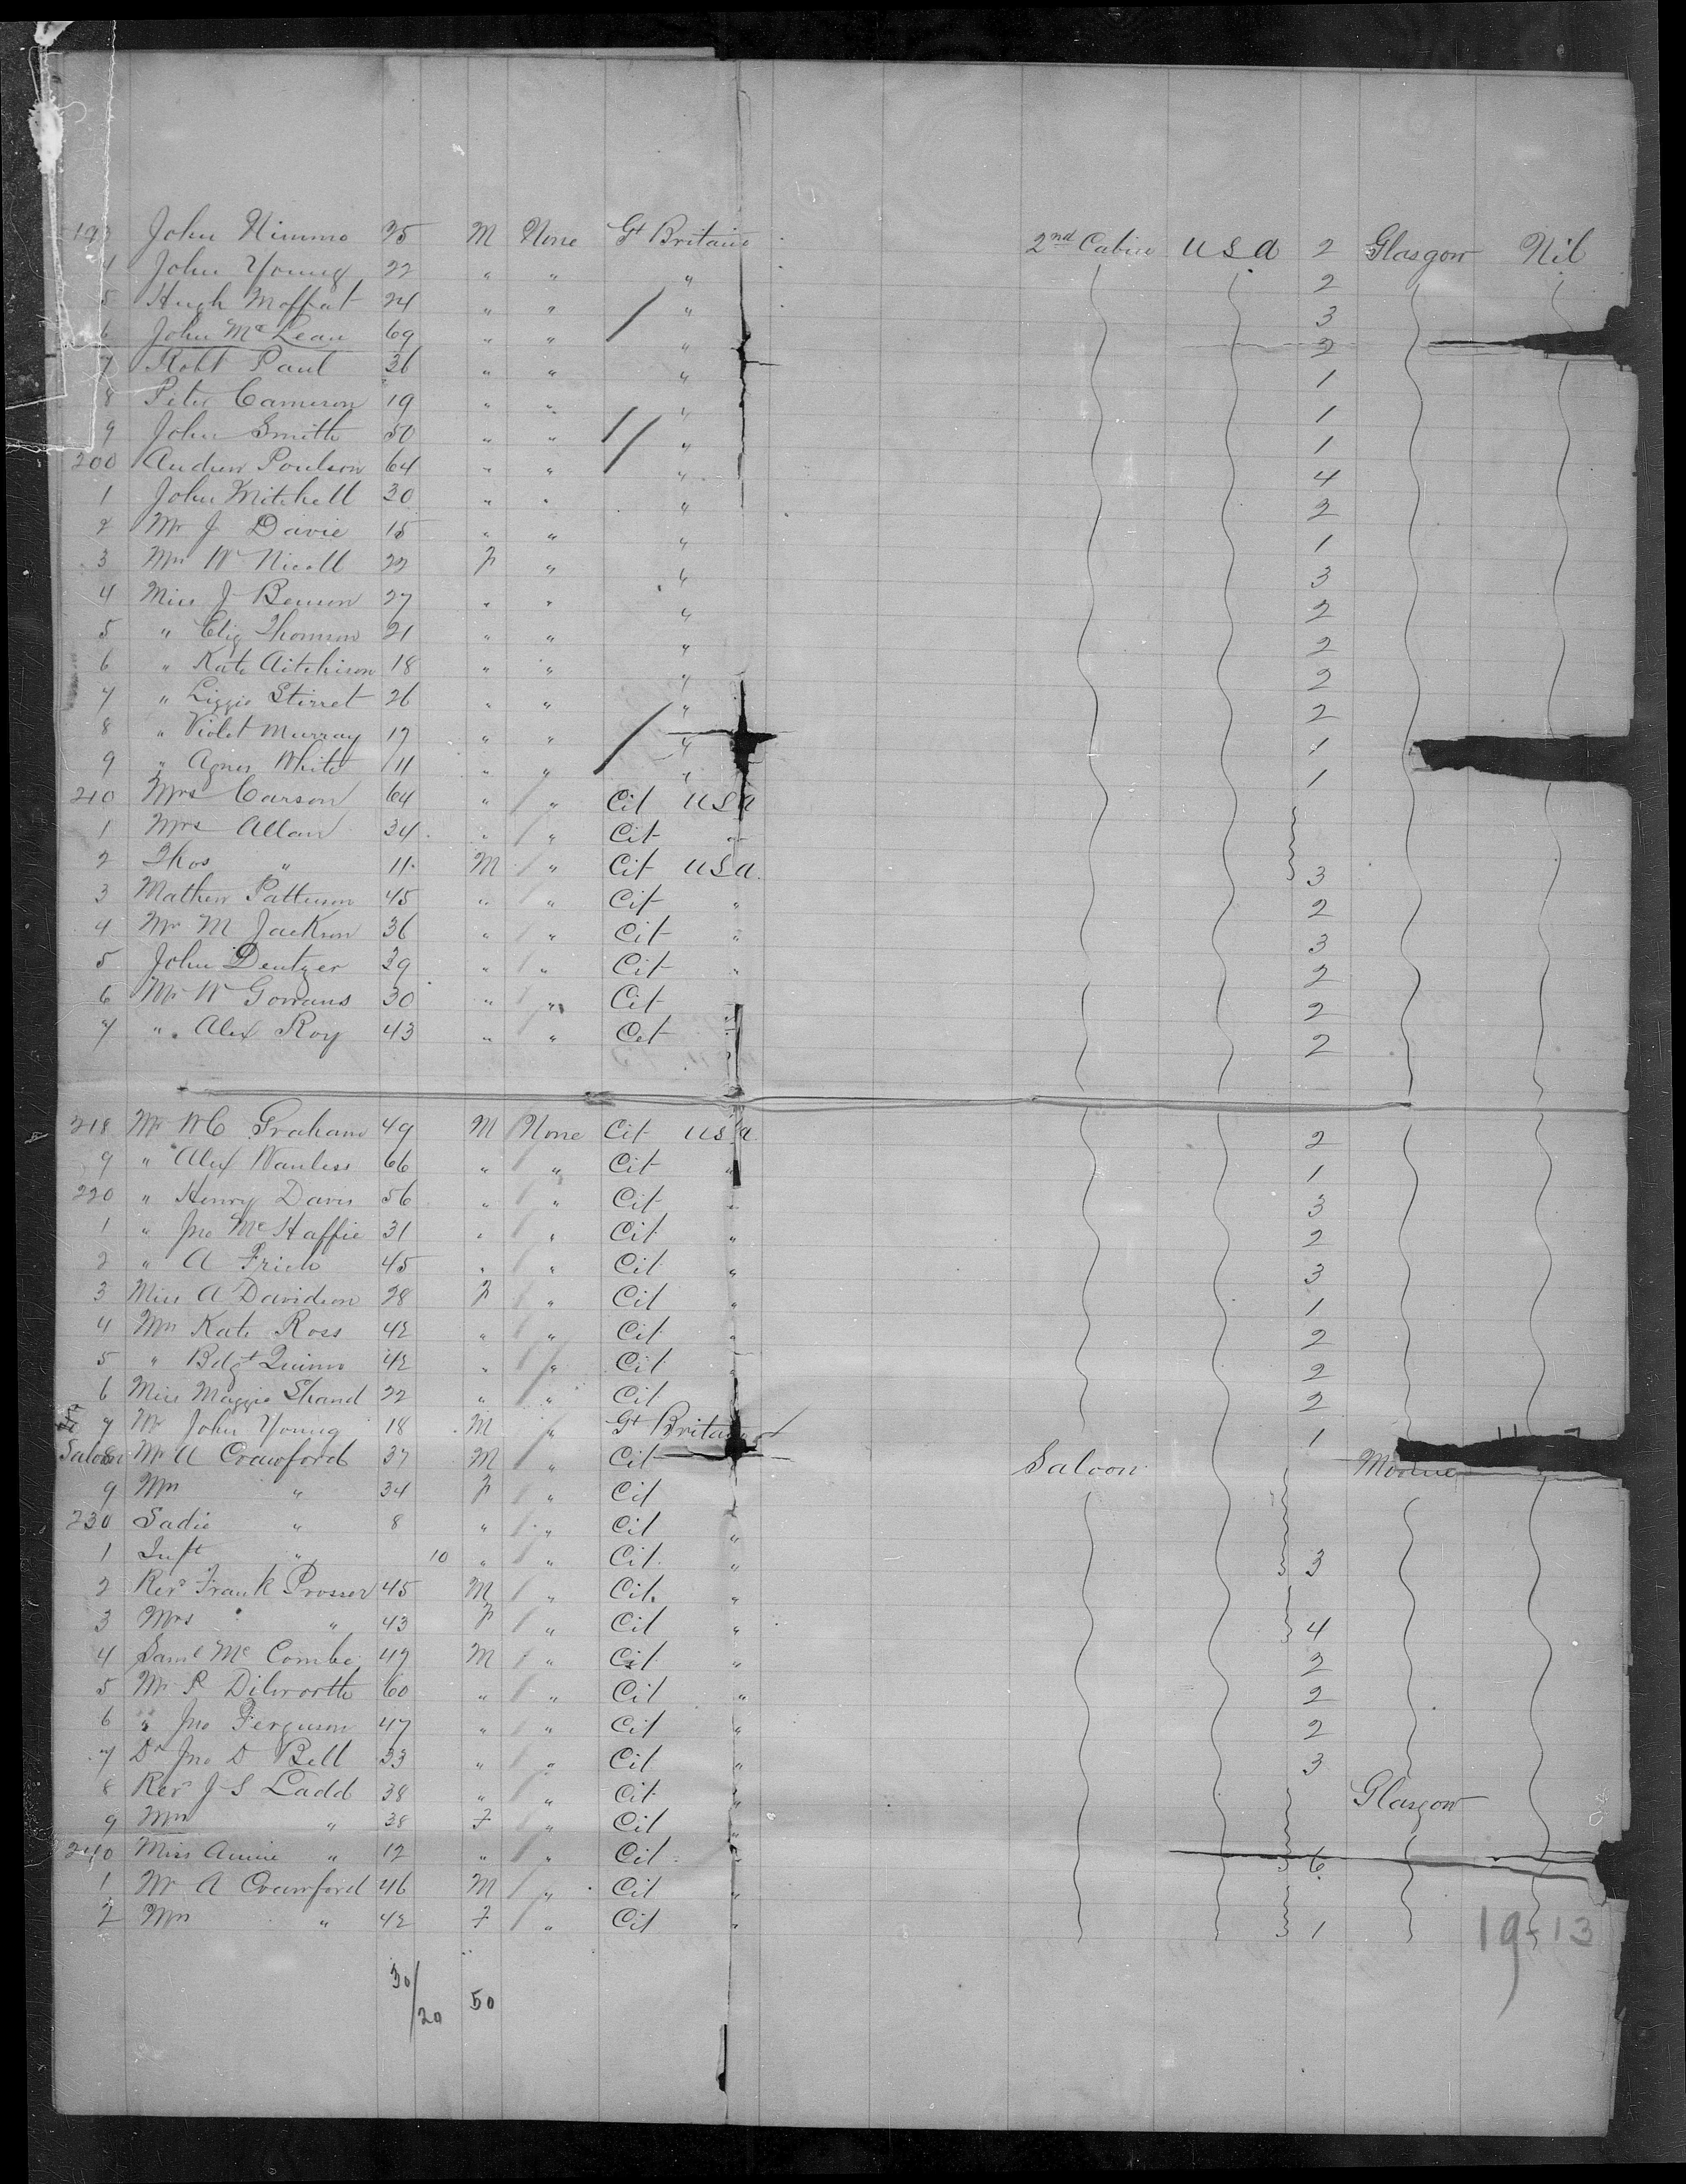 193 John Nimmo 25 M None Gt Britain 2nd Cabin USA 2 Glasgow Nil
4 John Young 22 " " " 2
5 Hugh Moffat 24 " " " 3
6 John McLean 69 " " " 2
7 Robt Paul 36 " " " 1
8 Peter Cameron 19 " " " 1
9 John Smith 50 " " " 1
200 Andrew Poulson 64 " " " 4
1 John Mitchell 30 " " " 2
2 Mr J Davie 15 " " " 1
3 Mrs W Nicoll 22 F " " 3
4 Miss J Benson 27 " " " 2
5 " Eliz Thomson 21 " " " 2
6 " Kate Aitchison 18 " " " 2
7 " Lizzie Stirret 26 " " " 2
8 " Violet Murray 17 " " " 1
9 " Agnes White 11 " " " 1
210 Mrs Carson 64 " " Cit USA
1 Mrs Allan 34 " " Cit "
2 Thos " 11 M " Cit USA 3
3 Mathew Patterson 45 " " Cit " 2
4 Mr M Jackson 36 " " Cit " 3
5 John Dentzer 39 " " Cit " 2
6 Mr W Gowans 30 " " Cit " 2
7 " Alex Roy 43 " " Cit " 2
218 Mr WC Graham 49 M None Cit USA 2
9 " Alex Wanless 66 " " Cit " 1
220 " Henry Davis 56 " " Cit " 3
1 " Jno McHaffie 31 " " Cit " 2
2 " A 45 " " Cit " 3
3 Miss A Davidson 28 F " Cit " 1
4 Mrs Kate Ross 42 " " Cit " 2
5 " Bdgt Quinn 42 " " Cit " 2
6 Miss Maggie Shand 22 " " Cit 2
7 Mr John Young 18 M " Gt Britain 1
Saloon 8 Mr A Crawford 37 M " Cit Saloon
9 Mrs " 34 F " Cit
230 Sadie " 8 " " Cit "
1 Inft " 10 " " Cit " 3
2 Revd Frank Prosser 45 M " Cit "
3 Mrs " 43 F " Cit " 4
4 Saml McCombe 47 M " Cit " 2
5 Mr R Dilworth 60 " " Cit " 2
6 " Jno Ferguson 47 " " Cit " 2
7 Dr Jno D Bell 33 " " Cit " 3
8 Revd J S Ladd 38 " " Cit " Glasgow
9 Mrs " 38 F " Cit "
240 Miss Annie " 12 " " Cit " 6
1 Mr A Crawford 46 M " Cit "
2 Mrs " 42 F " Cit " 1
19-13
30/20 50